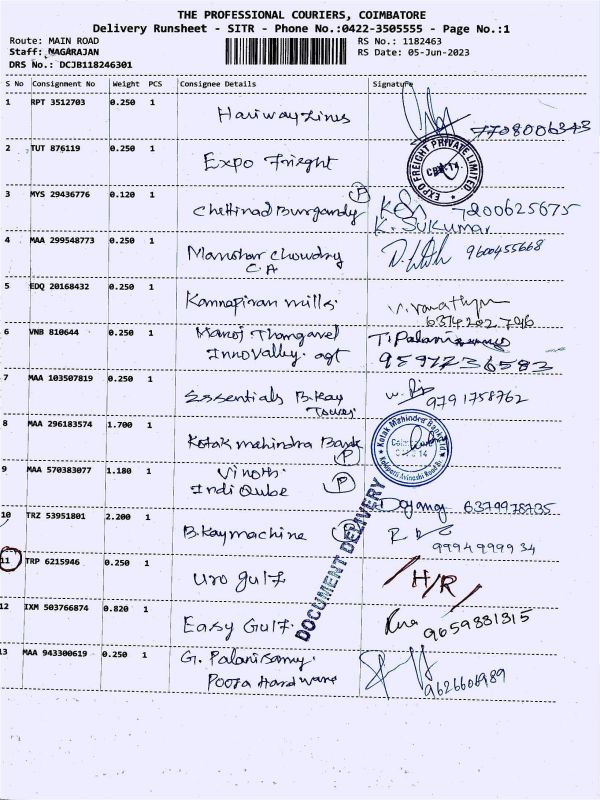 THE PROFESSIONAL COURIERS, COIMBATORE
Delivery Runsheet - SITR - Phone No.:0422-3505555 - Page No.:1
Route: MAIN ROAD RS No.: 1182463
Staff: NAGARAJAN RS Date: 05-Jun-2023
DRS No.: DCJB118246301
S No Consignment No Weight PCS Consignee Details Signature
1 RPT 3512703 0.250 1 Hariwayzines 7708006343
2 TUT 876119 0.250 1 Expo Frieght EXPO FREIGHT PRIVATE LIMITED CBE-14
3 MYS 29436776 0.120 1 Chettinad Burgandy P 7200625675
K. Sukumar
4 MAA 299548773 0.250 1 Manohar Chowdry 9600455668
C.A
5 EDQ 20168432 0.250 1 Kannapiran mills.
6374202796
6 VNB 810644 0.250 1 Manoj Thangavel
Innovalley. agt
7 MAA 103507819 0.250 1 Essentials B.Kay 9791758762
Tower
8 MAA 296183574 1.700 1 Kotak mahindra Bank P Kotak Mahindra Bank Ltd
9 MAA 570383077 1.180 1 Vinoth.
IndiQube P 6379978735
10 TRZ 53951801 2.200 1 B.Kaymachine 9994999934
11 TRP 6215946 0.250 1 Uro gulf H/R
DOCUMENT DELIVERY
12 IXM 503766874 0.820 1 Easy Gulf. 9659831315
13 MAA 943300619 0.250 1 G. Palanisamy.
Pooja Hardware 9626606989